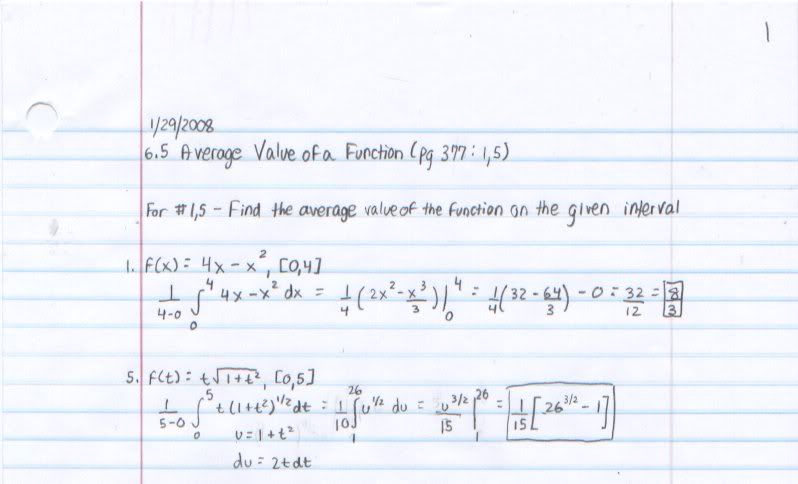 1
1/29/2008
6.5 Average Value of a Function (pg 377: 1,5)
For #1,5 - Find the average value of the function on the given interval
1. f(x) = 4x - x², [0,4]
1/(4-0) ∫₀⁴ 4x - x² dx = 1/4 (2x² - x³/3)|₀⁴ = 1/4(32 - 64/3) - 0 = 32/12 = 8/3
5. f(t) = t√(1+t²), [0,5]
1/(5-0) ∫₀⁵ t(1+t²)^(1/2) dt = 1/10 ∫₁²⁶ u^(1/2) du = u^(3/2)/15 |₁²⁶ = 1/15 [26^(3/2) - 1]
u = 1 + t²
du = 2t dt